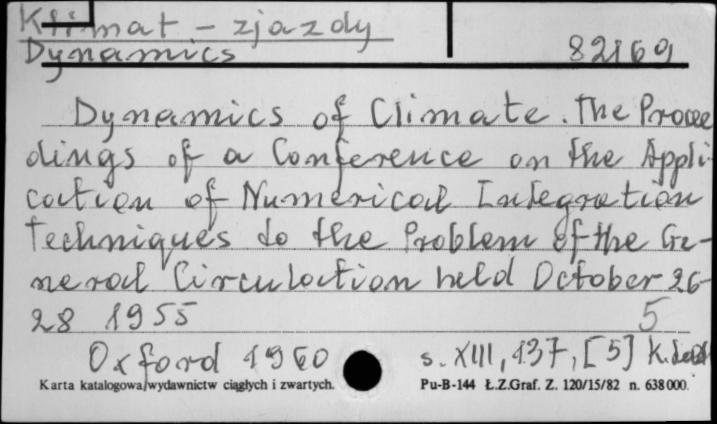 Klimat - zjazdy
Dynamics 82169
Dynamics of Climate. The Procee
dings of a Conference on the Appli-
cation of Numerical Integration
Techniques to the Problem of the Ge-
neral Circulation held October 26-
28 1955 5
Oxford 1960 s. XIII, 137, [5] K.
Karta katalogowa wydawnictw ciągłych i zwartych. Pu-B-144 Ł.Z.Graf. Z. 120/15/82 n. 638000.